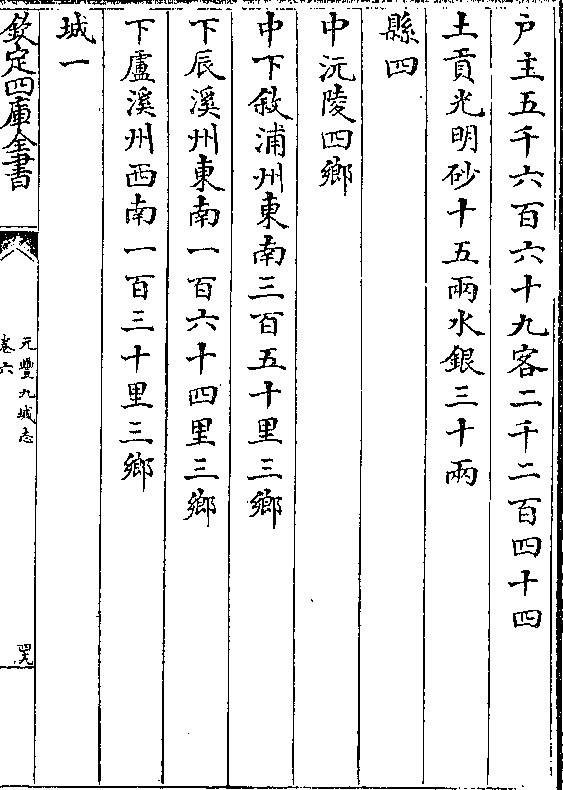 户主五千六百六十九客二千二百四十四
土貢光明砂十五兩水銀三十兩
縣四
中沅陵四鄉
中下敘浦州東南三百五十里三鄉
下辰溪州東南一百六十四里三鄉
下盧溪州西南一百三十里三鄉
城一
欽定四庫全書
元豐九域志
卷六